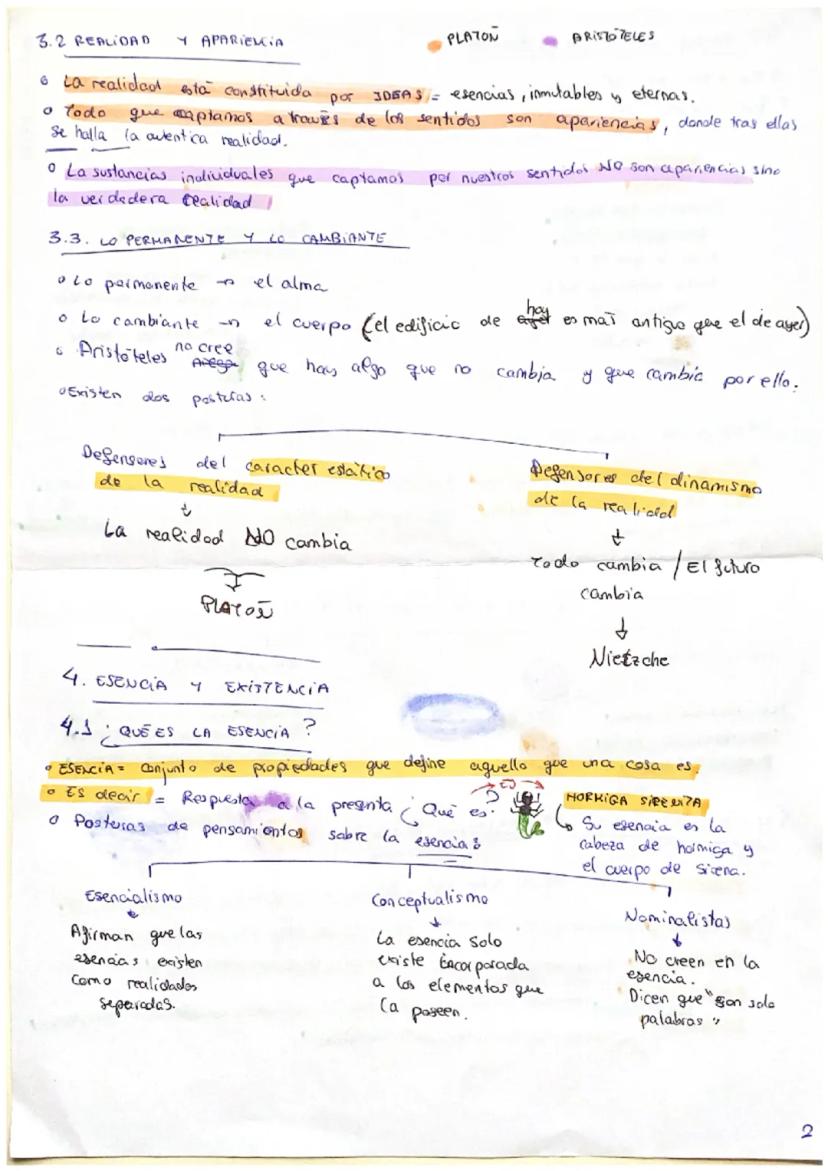 3.2 REALIDAD Y APARIENCIA
PLATOÑ
ARISTÓTELES
La realidad está constituida por IDEAS = esencias, inmutables y eternas.
Todo que captamos a través de los sentidos son apariencias, donde tras ellas
se halla la autentica realidad.
La sustancias individuales que captamos por nuestros sentidos NO son apariencias sino
la verdadera realidad
3.3. LO PERMANENTE Y LO CAMBIANTE
Lo permanente → el alma
Lo cambiante → el cuerpo (el edificio de hoy es maś antiguo que el de ayer)
Aristóteles no cree que hay algo que no cambia y que cambia por ello.
Existen dos posturas:
Defensores del caracter estático
de la realidad
↓
La realidad NO cambia
↓
PLATOÑ
Defensores del dinamismo
de la realidad
↓
Todo cambia / El futuro
cambia
↓
Nietzche
4. ESENCIA Y EXISTENCIA
4.1 ¿QUÉ ES LA ESENCIA?
ESENCIA = Conjunto de propiedades que define aquello que una cosa es
Es decir = Respuesta a la presenta ¿Qué es?
HORMIGA SIRENITA
Su esencia es la
cabeza de hormiga y
el cuerpo de sirena.
Posturas de pensamientos sobre la esencia:
Esencialismo
↓
Afirman que las
esencias existen
como realidades
separadas.
Conceptualismo
↓
La esencia solo
existe incorporada
a los elementos que
la poseen.
Nominalistas
↓
No creen en la
esencia.
Dicen que "son solo
palabras"
2